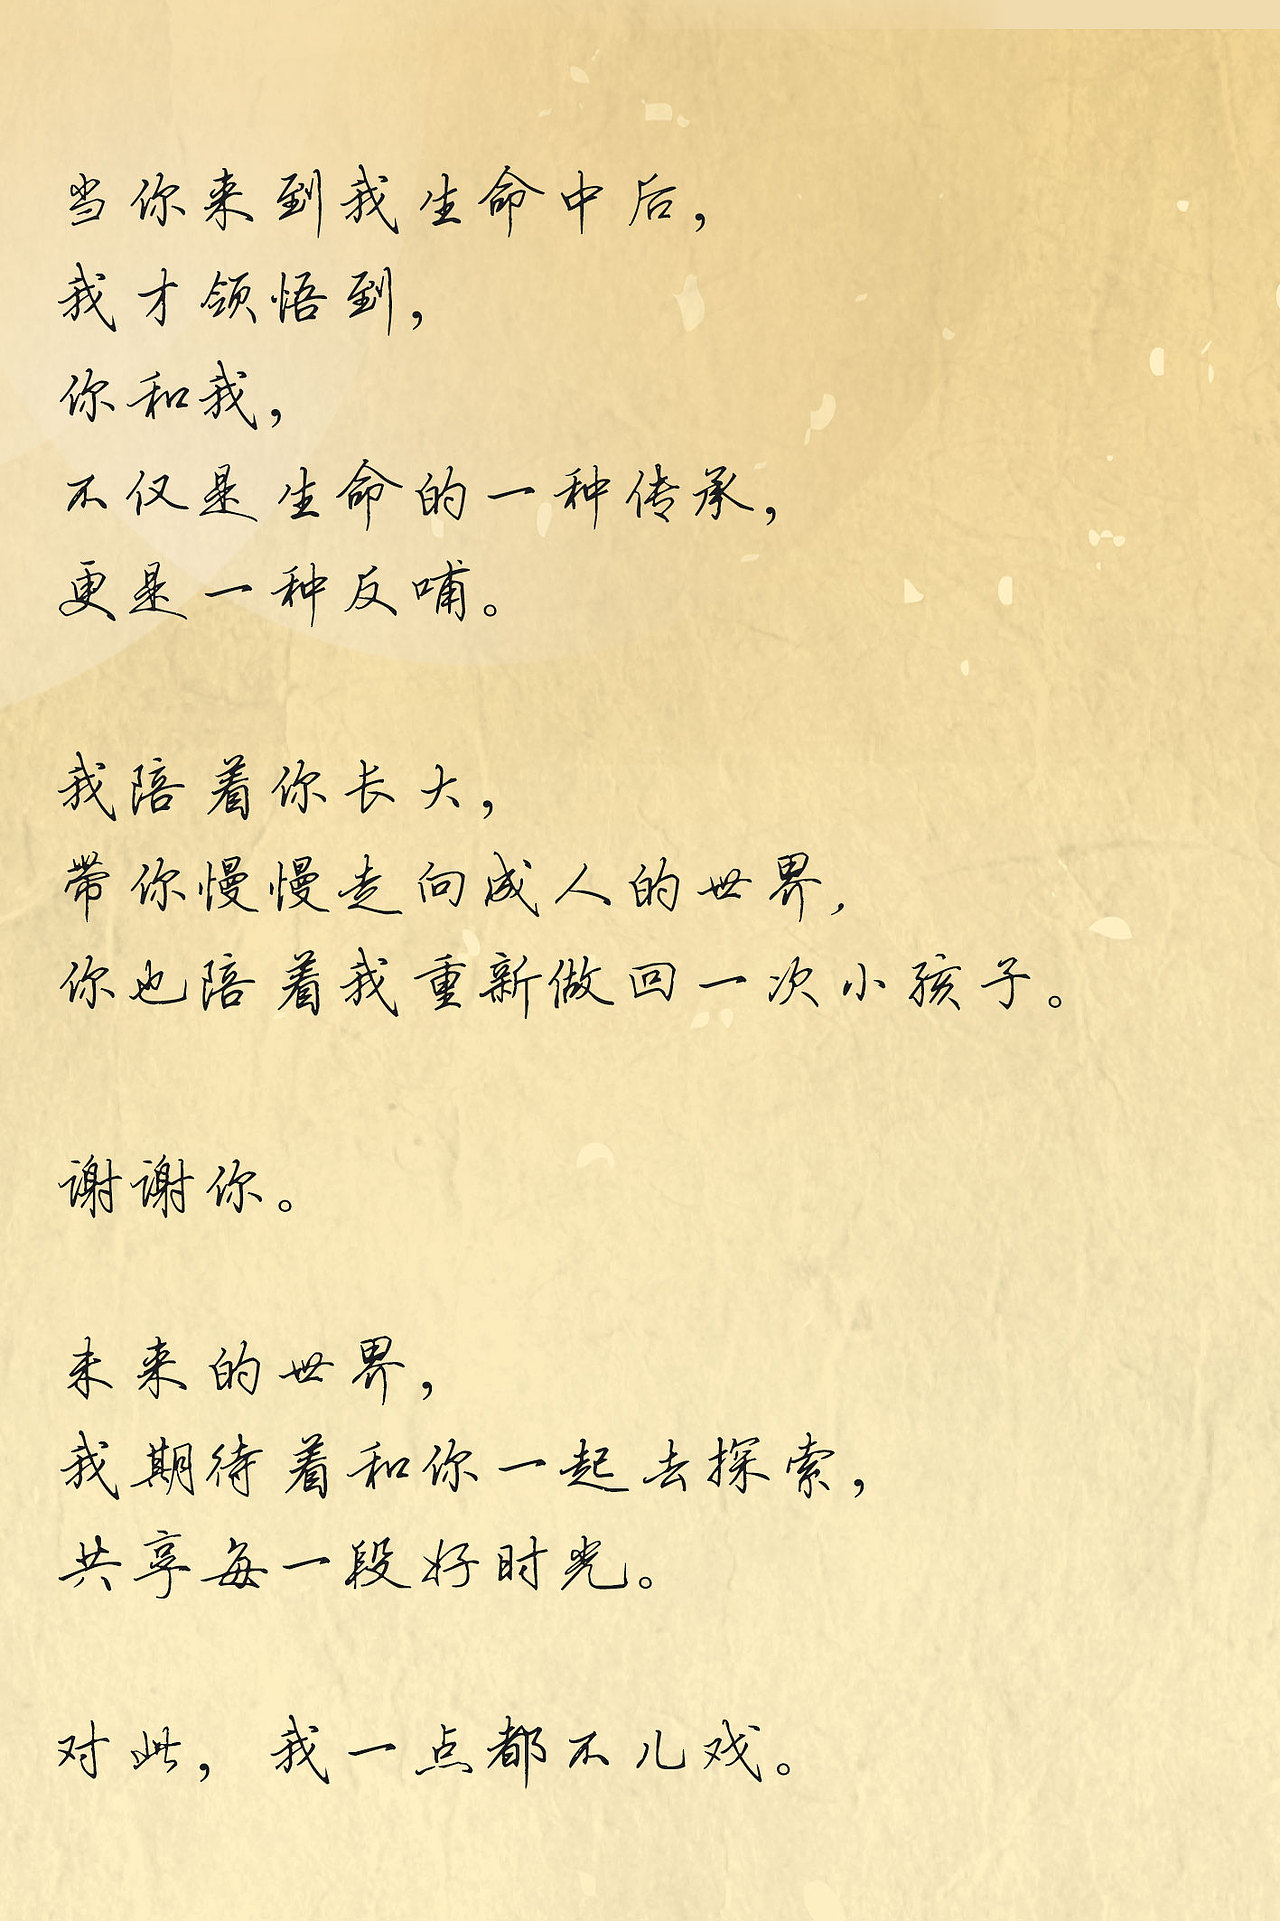 当你来到我生命中后，
我才领悟到，
你和我，
不仅是生命的一种传承，
更是一种反哺。
我陪着你长大，
带你慢慢走向成人的世界，
你也陪着我重新做回一次小孩子。
谢谢你。
未来的世界，
我期待着和你一起去探索，
共享每一段好时光。
对此，我一点都不儿戏。